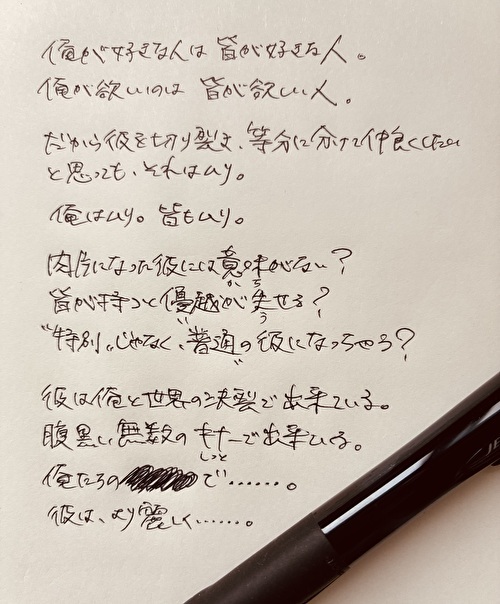 俺が好きな人は 皆が好きな人。
俺が欲しいのは 皆が欲しい人。
だから彼を切り裂き、等分に分けて仲良くしたい
と思っても、それはムリ。
俺はムリ。皆もムリ。
肉片になった彼には意味がない?
かち
皆が持つと優越が失せる?
う
“特別”じゃなく、“普通”の彼になっちゃう?
彼は俺と世界の決裂で出来ている。
腹黒い無数の で出来ている。
しっと
俺たちの で……。
彼は、より麗しく……。